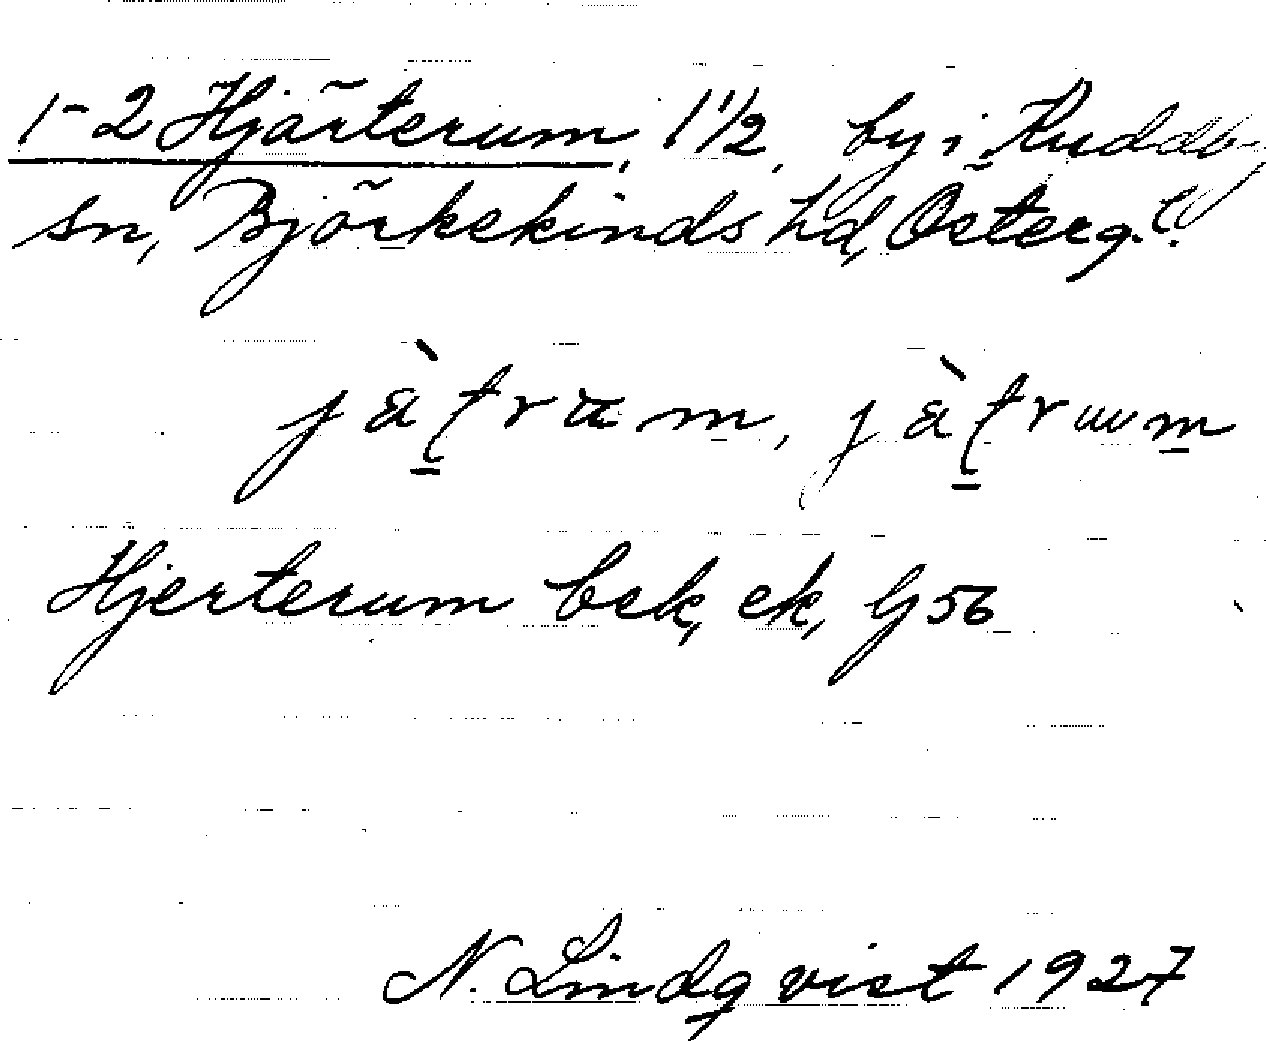 1-2 Hjärterum, 1 1/2, by i Kuddby
sn, Björkekinds hd, Österg. l.
jàʈram, jàʈrum
Hjerterum bek, ek, Gj 56
N. Lindqvist 1927